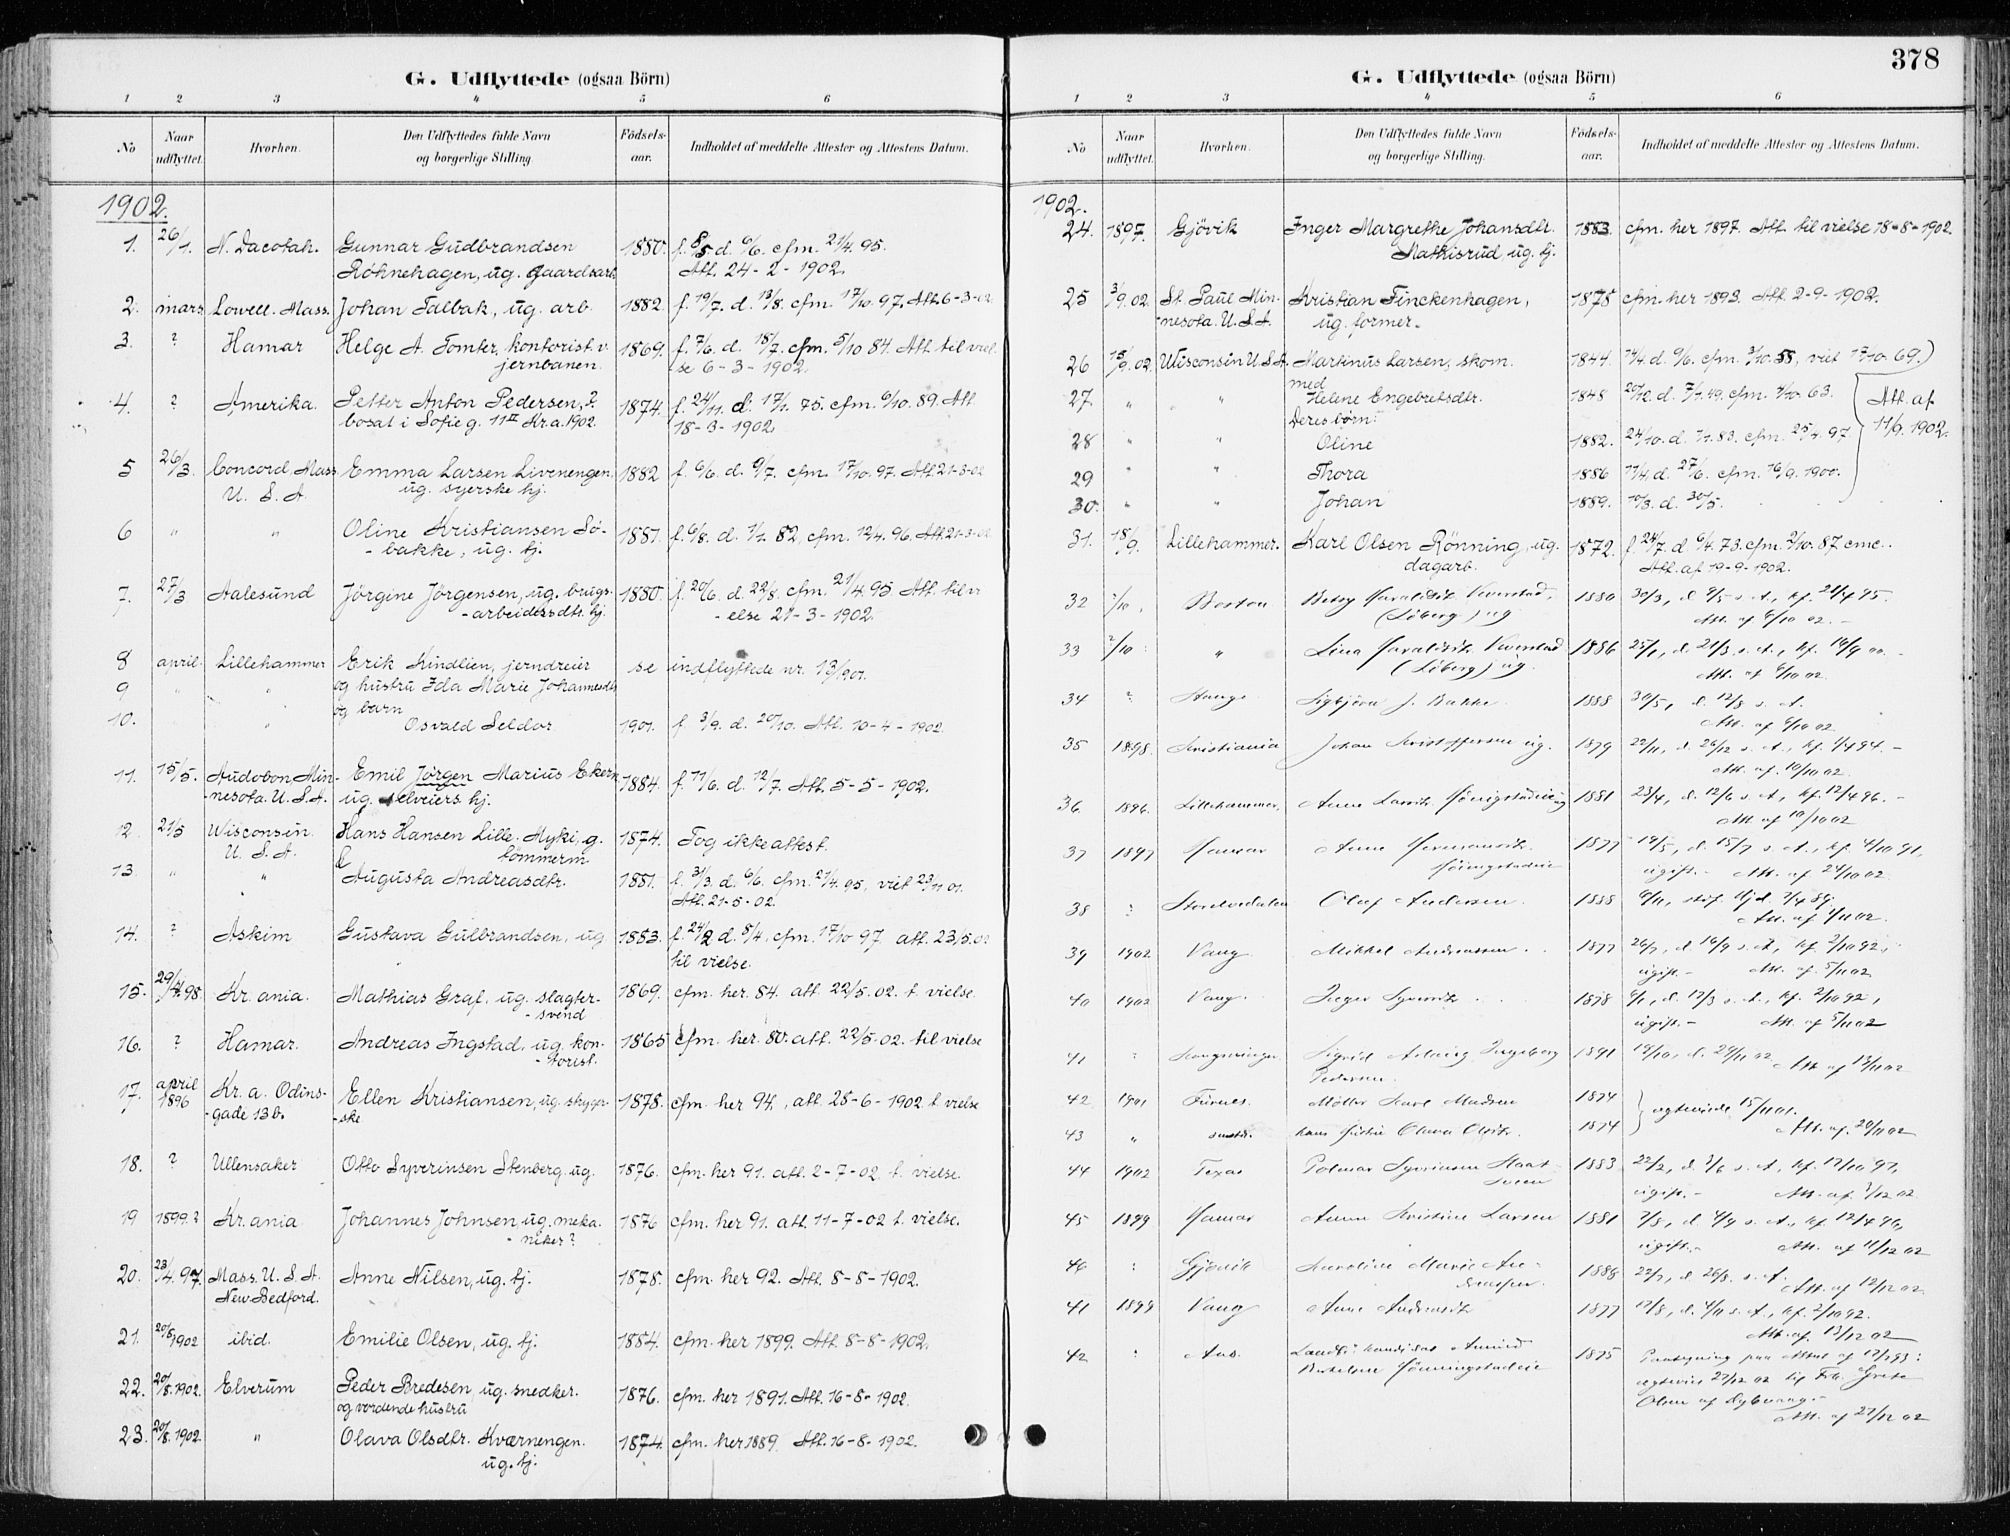 G. Udflyttede (ogsaa Börn)
1 2 3 4 5 6
No Naar udflyttet. Hvorhen. Den Udflyttedes fulde Navn og borgerlige Stilling. Födsels-aar. Indholdet af meddelte Attester og Attestens Datum.
1902.
1. 26/1. N. Dacotah. Gunnar Gudbrandsen 1880. f. 8/5. d. 6/6. cfm. 21/4. 95.
Röhnehagen, ug. gaardsarb. Att. 24-2-1902.
2. mars Lowell. Mass. Johan Talbak, ug. arb. 1882. f. 19/7. d. 13/8. cfm. 17/10. 97. Att. 6-3-02
3. ? Hamar Helge A. Tomter, kontorist v. 1869. f. 7/6. d. 18/7. cfm. 5/10 84. Att. til viel-
jernbanen. se 6-3-1902.
4. ? Amerika. Petter Anton Pedersen, ?. 1874. f. 24/11. d. 17/1. 75. cfm. 6/10. 89. Att.
bosat i Sofie g. 11 II Kr.a. 1902. 18-3-1902.
5 26/3. Concord Mass. Emma Larsen Livenengen, 1882 f. 6/6. d. 9/7. cfm. 17/10. 97. Att. 21-3-02
U. S. A. ug. syerske hj.
6 " " Oline Kristiansen Sö- 1881. f. 6/8. d. 1/1. 82, cfm. 12/4. 96. Att. 21-3-02
-bakke, ug. hj.
7. 27/3 Aalesund Jörgine Jörgensen, ug. brugs- 1880. f. 20/6. d. 22/8. cfm. 21/4. 95 Att. til vi
-arbeidersdtr. hj. -else 21-3-1902.
8 april. Lillehammer Erik Kindlien, jerndreier se indflyttede nr. 13/1901.
9 " " og hustru Ida Marie Johannesdtr
og barn
10. " Osvald Seldor 1901. f. 3/9. d. 20/10. Att. 10-4-1902.
11. 15/5. Audobon Min- Emil Jörgen Marius Ekern 1884. f. 11/6. d. 12/7. Att. 5-5-1902.
-nesota. U. S. A. ug. selveiers. hj.
12. 21/5 Wisconsin Hans Hansen Lille-Myki, g. 1874. Tog ikke attest.
U. S. A. tömmerm
13. " " Augusta Andreasdtr. 1881. f. 31/3. d. 6/6. cfm. 21/4. 95, viet 23/11 01.
Att. 21-5-02.
14. ? Askim Gustava Gulbrandsen, ug 1883. f. 24/2 d. 8/4. cfm. 17/10 97. att. 23/5.02
til vielse.
15. 29/4. 98. Kr. ania. Mathias Graf, ug. slagter- 1869. cfm. her. 84. att. 22/5. 02. t. vielse
-svend
16. ? Hamar. Andreas Ingstad, ug. kon- 1865 cfm. her. 80. att. 22/5. 02. til vielse
-torist.
17. april 1896 Kr. a. Odins- Ellen Kristiansen, ug. skyger- 1878. cfm. her 94., att. 28-6-1902 t. vielse
-gade 13 b. -ske
18. ? Ullensaker Otto Syverinsen Stenberg, ug. 1876. cfm. her 91. att. 2-7-02. t. vielse.
19 1899.? Kr. ania Johannes Johnsen ug. meka- 1876 cfm. her 91. att. 11-7-02 t. vielse.
-niker?
20. 23/4. 97. Mass. U. S. A. Anne Nilsen, ug. hj. 1878. cfm. her 92. Att. 8-8-1902.
New-Bedford.
21. 20/8 1902 ibid. Emilie Olsen, ug. hj. 1884. cfm. her 1899. Att. 8-8-1902.
22. 20/8. 1902. Elverum Peder Bredesen, ug. snedker. 1876. cfm. her 1891. Att. 16-8-1902.
og vordende hustru
23. 20/8. 1902. " Olava Olsdtr. Kværnengen. 1874. cfm. her 1889. Att. 16-8-1902.
ug. hj.
378
G. Udflyttede (ogsaa Börn)
1 2 3 4 5 6
No Naar udflyttet. Hvorhen. Den Udflyttedes fulde Navn og borgerlige Stilling. Födsels-aar. Indholdet af meddelte Attester og Attestens Datum.
1902.
24. 1897. Gjövik Inger Margrethe Johansdtr. 1883. cfm. her 1897. Att. til vielse 18-8-1902.
Mathisrud, ug. hj.
25 3/9. 02. St. Paul Min- Kristian Finckenhagen, 1878 cfm. her 1893. Att. 2-9-1902.
-nesota. U. S. A. ug. former.
26 15/9. 02. Wisconsin U. S. A. Martinus Larsen, skom. 1844. 14/4 d. 9/6. cfm. 3/10. 58, viet 17/10. 69.
med
27. " " Helene Engebretsdtr. 1848 20/12. d. 7/1. 49. cfm. 4/10. 63. Att. af
Deres börn:
28 " " Oline 1882. 24/10. d. 7/1. 83. cfm. 25/4. 97. 11/9. 1902.
29 " " Thora 1886 11/4. d. 27/6. cfm. 16/9. 1900.
30. " " Johan 1889. 10/3. d. 30/5.
31. 18/9. Lillehammer. Karl Olsen Rönning, ug. 1872. f. 24/7. d. 6/4. 73. cfm. 2/10. 87 eme..
dagarb. Att. af 19-9-1902.
32 2/10. Boston Betsy Haraldsdtr. Kverstad, 1880 30/3, d. 9/5 s. A., kf. 21/4 95.
(Söberg) ug Att. af 6/10 02.
33 2/10 " Lina Haraldsdtr. Kverstad 1886 25/1, d. 21/3 s. A., kf. 16/9 00.
(Söberg) ug. Att. af 6/10 02.
34 ? Stange Sigbjörn J. Bakke. 1888 30/5, d. 12/8 s. A.
Att. af 6/10 02
35 1898. Kristiania Johan Kristoffersen ug. 1879 22/11, d. 26/12 s. A., kf. 1/4 94.
Att. af. 10/10 02.
36. 1896. Lillehammer, Anne Larsdtr. Hönigstadeie ug 1881 23/4, d. 12/6 s. A., kf. 12/4 96.
Att. af 10/10 02
37 1897 Hamar Anne Hermansdtr. 1877 14/5, d. 15/7 s. A., kf. 4/10 91,
ugift. Att. af 24/10 02.
38 ? Storelvedalen Oluf Andersen. 1888 6/11, d. 7/4 89.
Att. af 1/11 02.
39 1902 Vang. Mikkel Andreassen. 1877 26/7, d. 16/9 s. A., kf. 2/10 92,
ugift. Att. af. 5/11 02
40 1902 Vang. Inger Syversdtr. 1878 6/1, d. 17/3 s. A., kf. 2/10 92,
ugift. Att. af 5/11 02
41 ? Kongsvinger Sigrid Ingeborg 1891 18/10, d. 29/11 02
Pedersen. Att. af 13/11 02
42 1901 Furnes. Möller Karl Madsen 1874 ægteviede 15/11 01.
43 " hans Hustru Olava Olsdtr. 1874 Att. af. 20/11 02
44 1902 Texas Polmar Syversen 1883 22/2, d. 3/6 s. A., kf. 17/10 97,
ugift. Att. af 1/12 02
45 1899 Hamar Anne Kristine Larsen 1881 7/8, d. 4/9 s. A., kf. 12/4 96,
ugift. Att. af 11/12 02
46 ? Gjövik Karoline Marie An- 1888 22/7, d. 26/8. s. A.
Att. af 12/12 02.
41 1899 Vang Anne Andersdtr. 1877 17/8, d. 4/11 s. A., kf. 2/10 92.
Att. af. 13/12 02
42 ? Aas. Landbr. kandidat Amund 1875 Paategning paa Attest af 17/7 93:
ægteviet 27/12 02 til Frk. Grete
Olsen af
Att. af 27/12 02